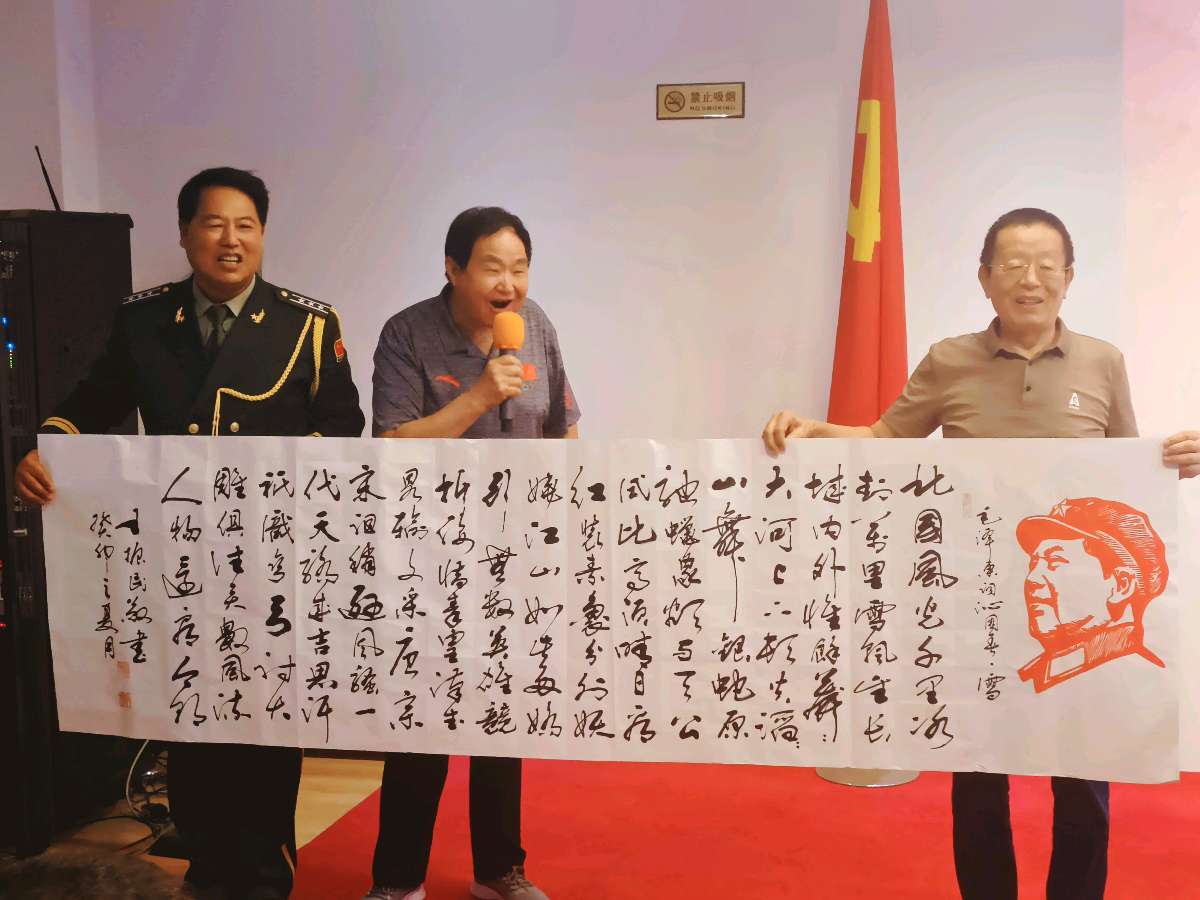 禁止吸烟
毛泽东词沁园春·雪
北國風光千里冰
封万里雪飘望长
城内外惟餘莽〻
大河上下頓失滔〻
山舞銀蛇原
驰蠟象欲与天公
试比高须晴日看
红装素裹分外妖
娆江山如此多娇
引無数英雄競
折腰惜秦皇漢武
略输文采唐宗
宋祖稍逊風骚一
代天骄成吉思汗
祇識弯弓射大
雕俱往矣數風流
人物還看今朝
王振民敬書
癸卯之夏月